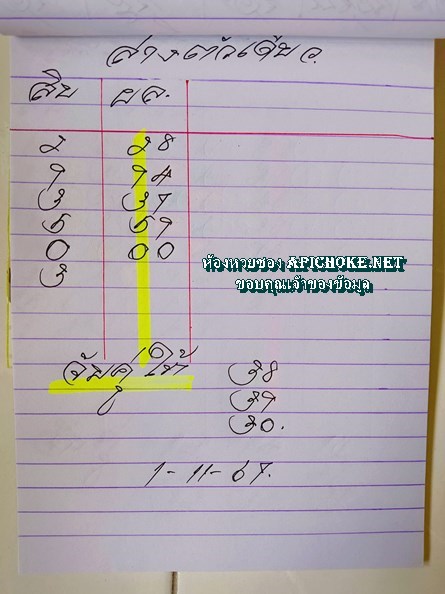 สางตัวเดียว.
สิบ ผล.
2 28
9 94
3 39
6 69
0 00
3
ห้องหวยซอง APICHOKE.NET
ขอบคุณเจ้าของข้อมูล
38
39
30.
1-11-67.